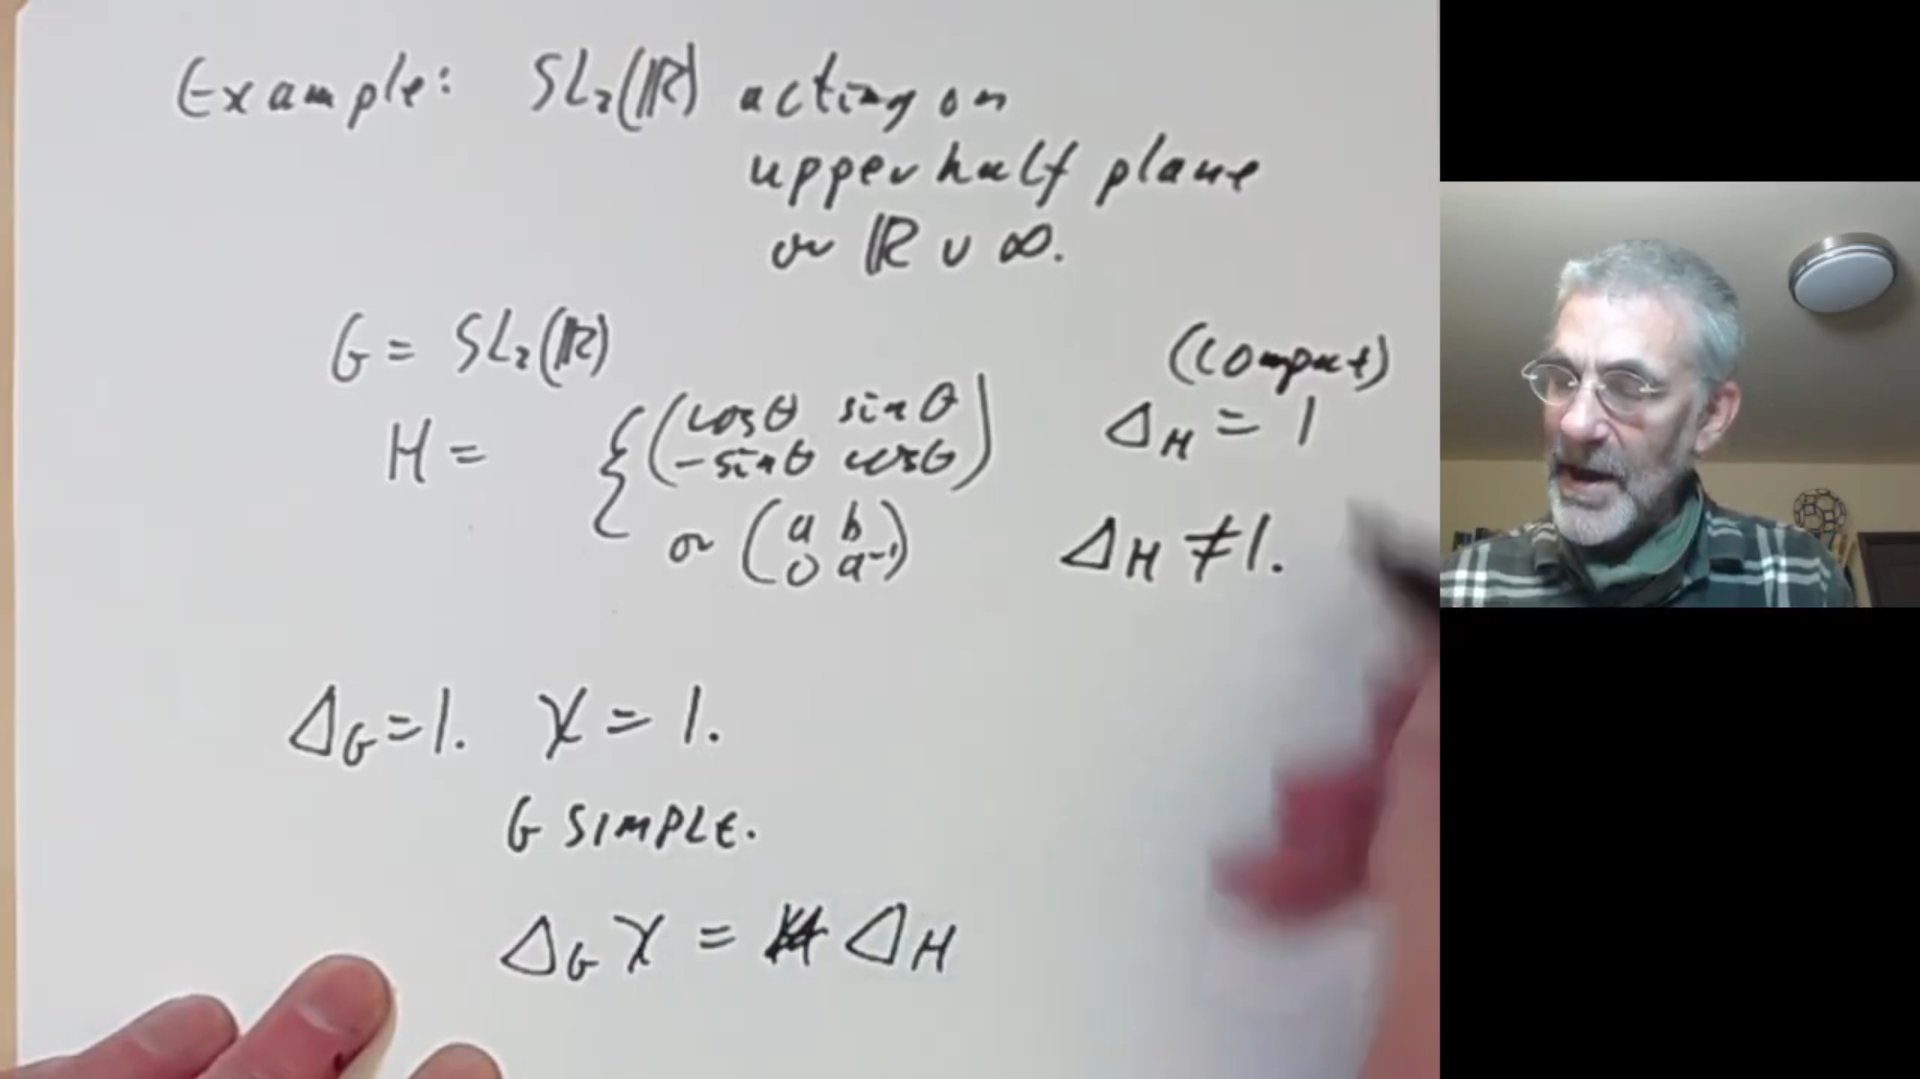 Example: SL₂(ℝ) acting on
upper half plane
or ℝ ∪ ∞.
G = SL₂(ℝ)
(compact)
H = { (cosθ sinθ
-sinθ cosθ) Δ_H = 1
or (a b
0 a⁻¹) Δ_H ≠ 1.
Δ_G = 1. χ = 1.
G SIMPLE.
Δ_G χ = Δ_H